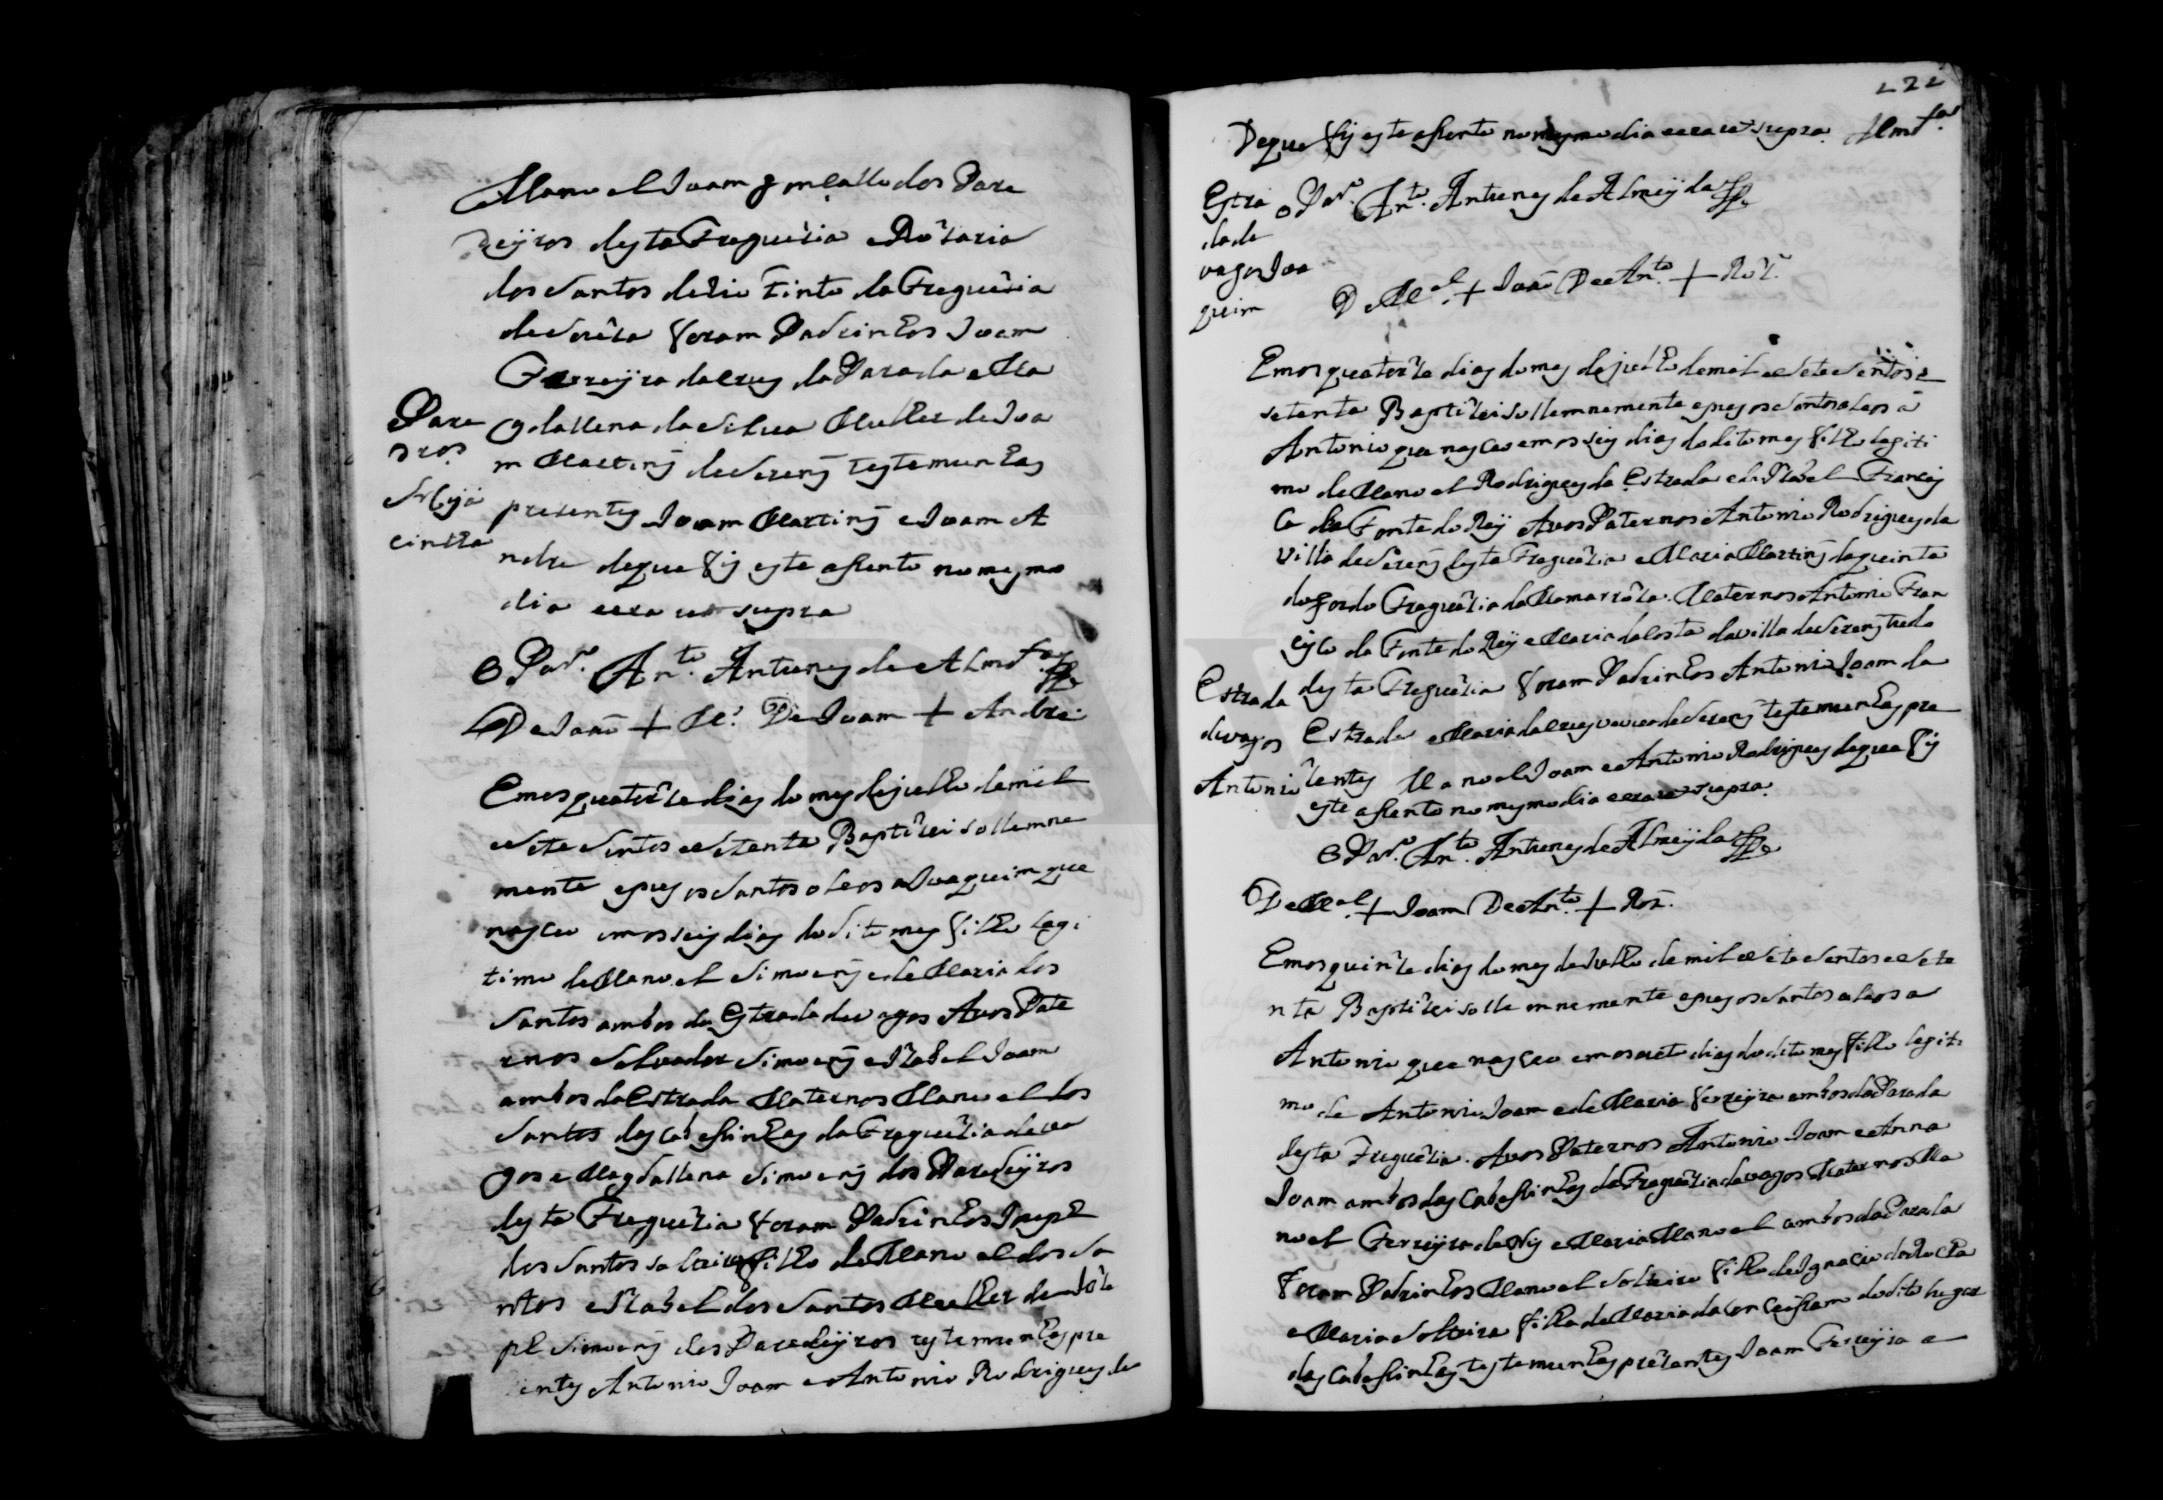 Manoel Joam gonçallo dos Pare
deijros desta Freguezia e Rozaria
dos Santos de Rio Tinto da Freguezia
de Soréza foram Padrinhos Joam
Ferreijra da crus da Parada e Ma
gdallena da Silua Mulher de Joa
m Martinz de Serenz testemunhas
prezentes Joam Martinz e Joam A
ndre de que fis este asento no mesmo
dia e era ut supra
O Par.º An.to Antunes de Almd.a
De Joaõ + M.el De Joam + Andre
Pare
dros
Jacinta
Em os quatorze dias do mes de julho de mil
e Sete Sentos e Setenta Baptizei sollemne
mente e pus os Santos oleos a Joaquim que
nasceu em os seis dias do dito mes filho legi
timo de Manoel Simoenz e de Maria dos
Santos ambos da Estrada de vagos Avos Pate
rnos Saluador Simoenz e Izabel Joam
ambos da Estrada Maternos Manoel dos
Santos das Cabessinhas da Freguezia de va
gos e Magdallena Simoenz dos Paredeijros
desta Freguezia foram Padrinhos Jozeph
dos Santos solteiro filho de Manoel dos Sa
ntos e Izabel dos Santos Mulher de Joze
ph Simoenz dos Paredeijros testemunhas pre
zentes Antonio Joam e Antonio Rodrigues de
222
De que fis este asento no mesmo dia e era ut supra. Almd.a
O Par.º An.to Antunes de Almeijda
De M.el + Joaõ De An.to + Roiz
Estra
da de
vagos Joa
quim
Em os quatorze dias do mes de julho de mil e Sete Sentos e
setenta Baptizei sollemnemente e pus os Santos oleos a
Antonio que nasceo em os seis dias do dito mes filho legiti
mo de Manoel Rodrigues da Estrada e de Izabel Francis
ca da Fonte do Reij Avos Paternos Antonio Rodrigues da
villa de Serenz desta Freguezia e Maria Martinz da quinta
do gordo Freguezia da Mamarroza. Maternos Antonio Fran
cisco da Fonte do Reij e Maria da Costa da villa de Serenz tudo
desta Freguezia foram Padrinhos Antonio Joam da
Estrada e Maria da crus veuva de Serenz testemunhas pre
zentes Manoel Joam e Antonio Rodrigues de que fis
este asento no mesmo dia e era ut supra.
Estrada
de vagos
Antonio
O Par.º An.to Antunes de Almeijda
De M.el + Joam De An.to + Roz.
Em os quinze dias do mes de Julho de mil e Sete Sentos e Sete
nta Baptizei sollemnemente e pus os Santos oleos a
Antonio que nasceu em os outo dias do dito mes filho legiti
mo de Antonio Joam e de Maria ferreijra ambos da Parada
desta Freguezia. Avos Paternos Antonio Joam e Anna
Joam ambos das Cabessinhas da Freguezia de vagos Maternos Ma
noel Ferreijra e Maria Manoel ambos da Parada
foram Padrinhos Manoel Solteiro filho de Ignacio da Rocha
e Maria Solteira filha de Maria da Conceisam do dito lugar
das Cabessinhas testemunhas prezentes Joam Ferreijra e